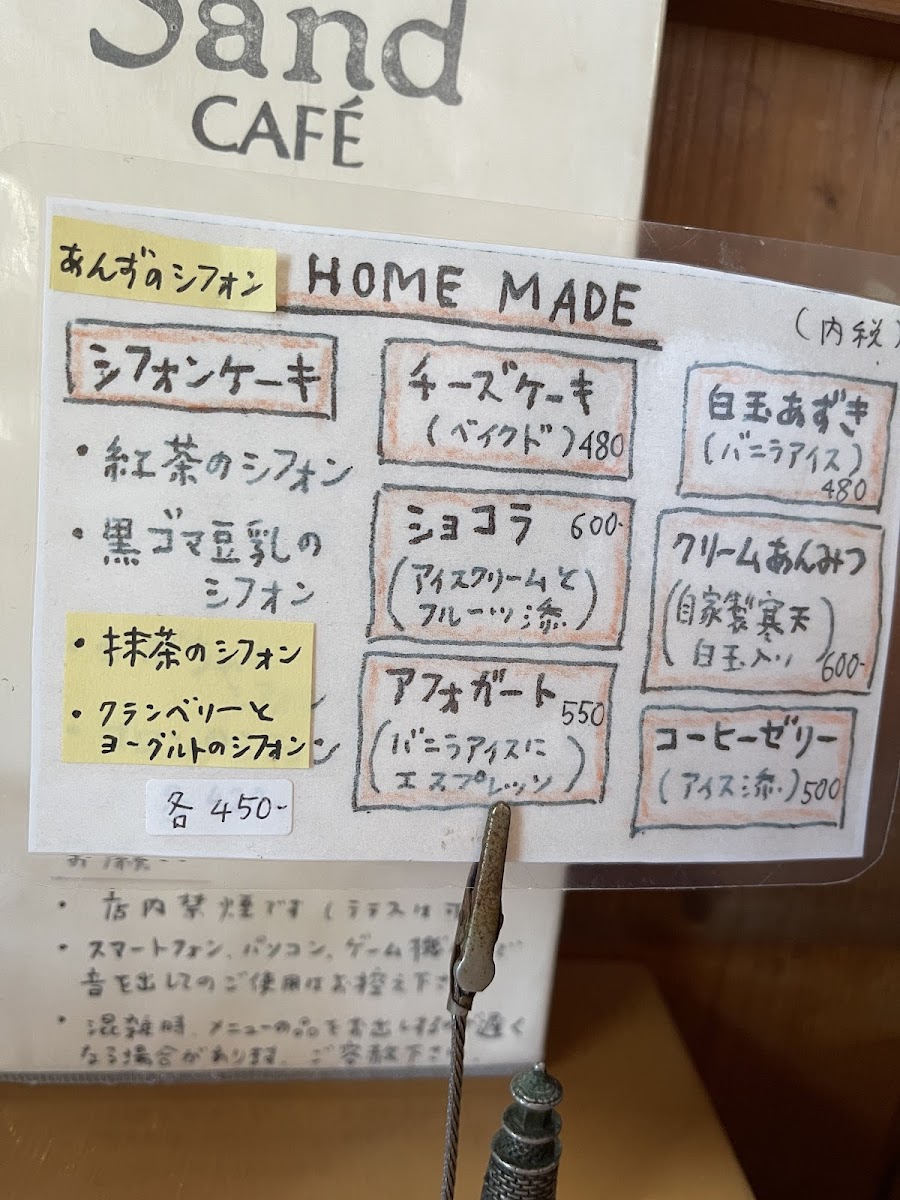 Sand
CAFÉ
あんずのシフォン
HOME MADE
(内税)
シフォンケーキ
・紅茶のシフォン
・黒ゴマ豆乳の
シフォン
・抹茶のシフォン
・クランベリーと
ヨーグルトのシフォン
各 450-
チーズケーキ
(ベイクド) 480
ショコラ 600-
(アイスクリームと
フルーツ添)
アフォガート
550
(バニラアイスに
エスプレッソ)
白玉あずき
(バニラアイス)
480
クリームあんみつ
(自家製寒天
白玉入り)
600-
コーヒーゼリー
(アイス添) 500
・店内禁煙です(テラスは可
・スマートフォン、パソコン、ゲーム機
音を出してのご使用はお控え下さ
・混雑時、メニューの品をお出しするのが遅く
なる場合があります。ご容赦下さい。